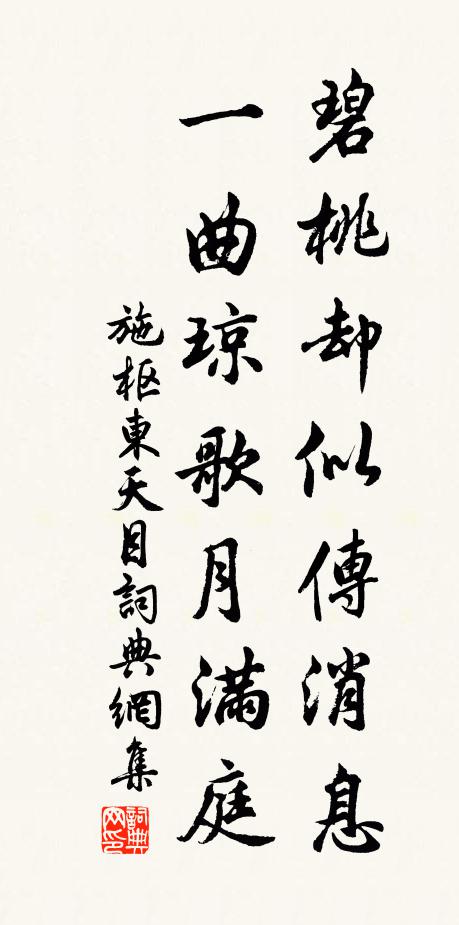 碧桃却似傳消息
一曲琼歌月滿庭
施枢東天目詞典網集
詞典網印